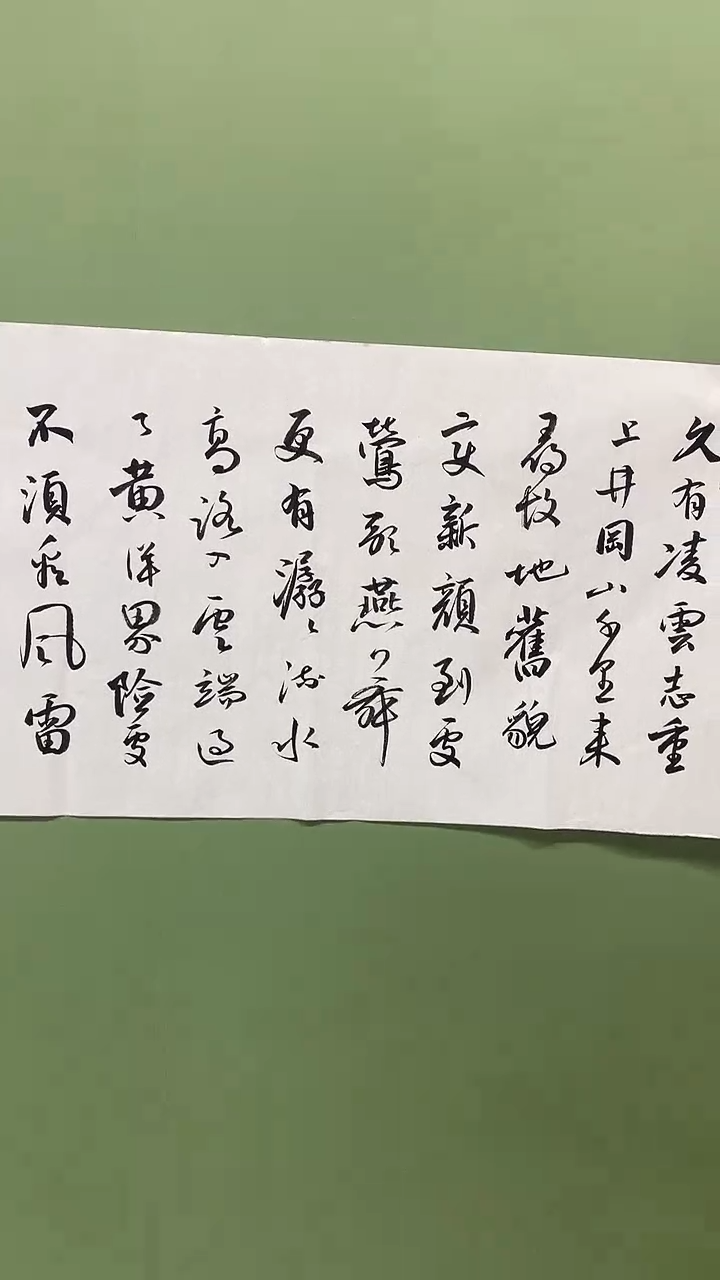 久有凌雲志重
上井岡山千里来
尋故地舊貌
变新颜到处
鶯歌燕舞
更有潺〻流水
高路入雲端过
了黄洋界险处
不須看風雷